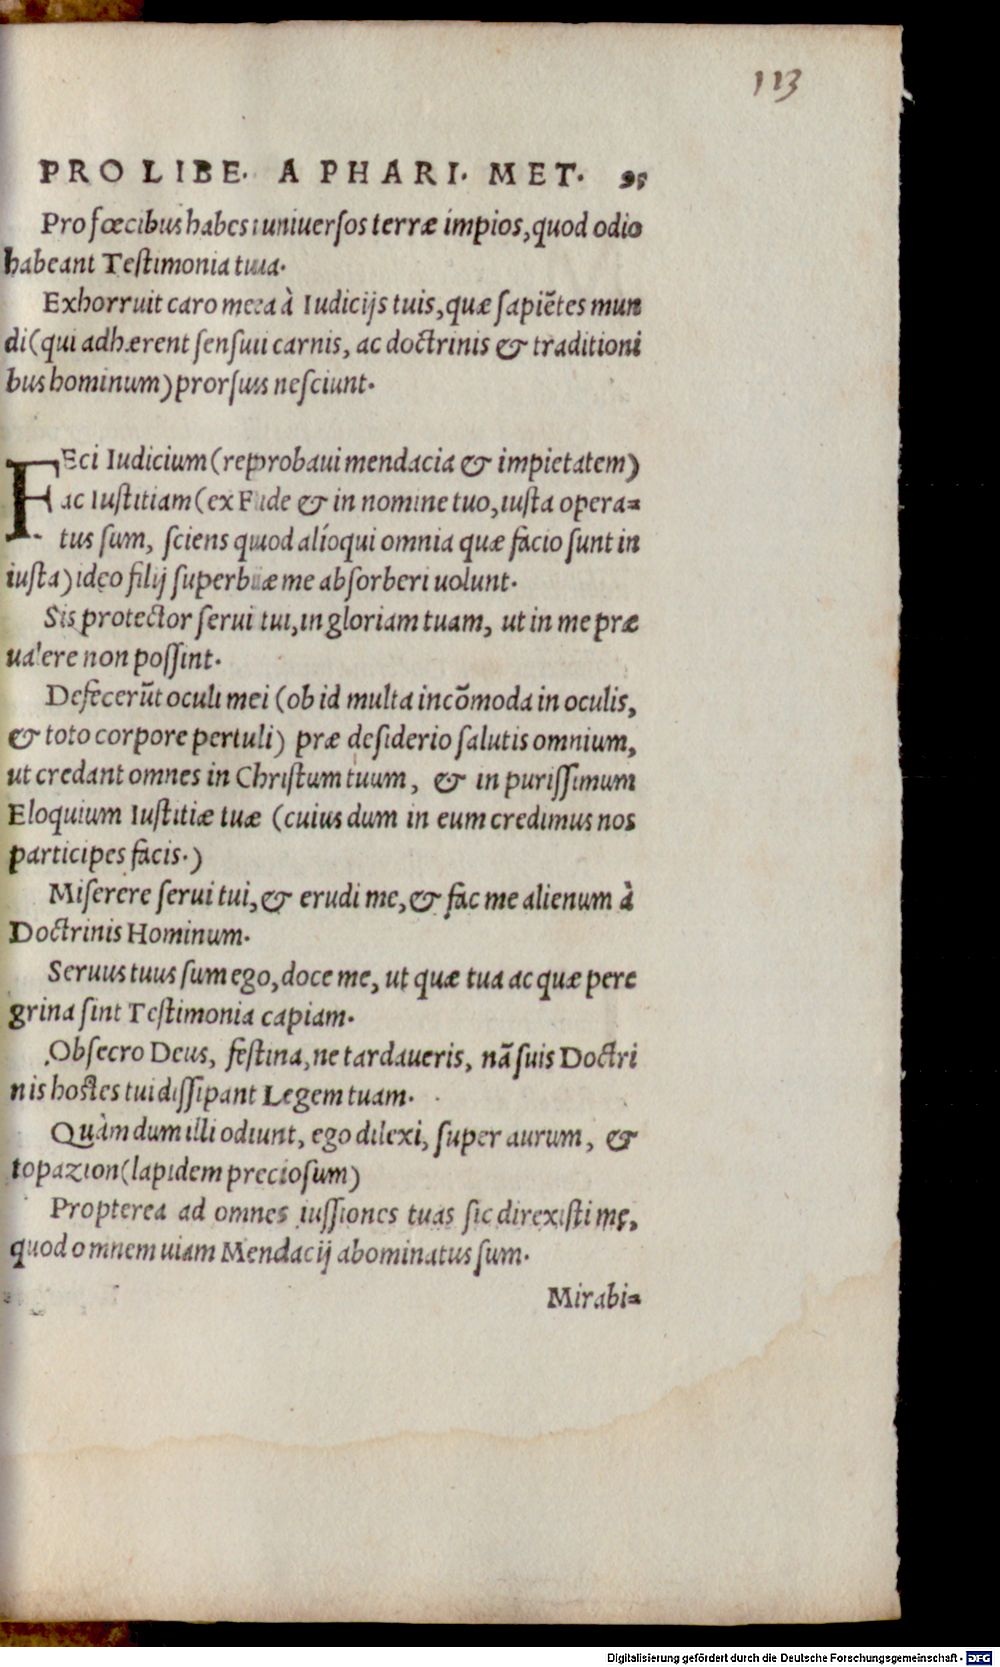 113
PRO LIBE. A PHARI. MET. 95
Pro fœcibus habes uniuersos terræ impios, quod odio
habeant Testimonia tua.
Exhorruit caro mea à Iudicijs tuis, quæ sapiẽtes mun
di (qui adhærent sensui carnis, ac doctrinis & traditioni
bus hominum) prorsus nesciunt.
FEci Iudicium (reprobaui mendacia & impietatem)
ac Iustitiam (ex Fide & in nomine tuo, iusta opera-
tus sum, sciens quod alíoqui omnia quæ facio sunt in
iusta) ideo filij superbiæ me absorberi uolunt.
Sis protector serui tui, in gloriam tuam, ut in me præ
ualere non possint.
Defecerũt oculi mei (ob id multa incõmoda in oculis,
& toto corpore pertuli) præ desiderio salutis omnium,
ut credant omnes in Christum tuum, & in purissimum
Eloquium Iustitiæ tuæ (cuius dum in eum credimus nos
participes facis.)
Miserere serui tui, & erudi me, & fac me alienum à
Doctrinis Hominum.
Seruus tuus sum ego, doce me, ut quæ tua ac quæ pere
grina sint Testimonia capiam.
Obsecro Deus, festina, ne tardaueris, nã suis Doctri
nis hostes tui dissipant Legem tuam.
Quàm dum illi odiunt, ego dilexi, super aurum, &
topazion (lapidem preciosum)
Propterea ad omnes iussiones tuas sic direxisti me,
quod omnem uiam Mendacij abominatus sum.
Mirabi-
Digitalisierung gefördert durch die Deutsche Forschungsgemeinschaft - DFG